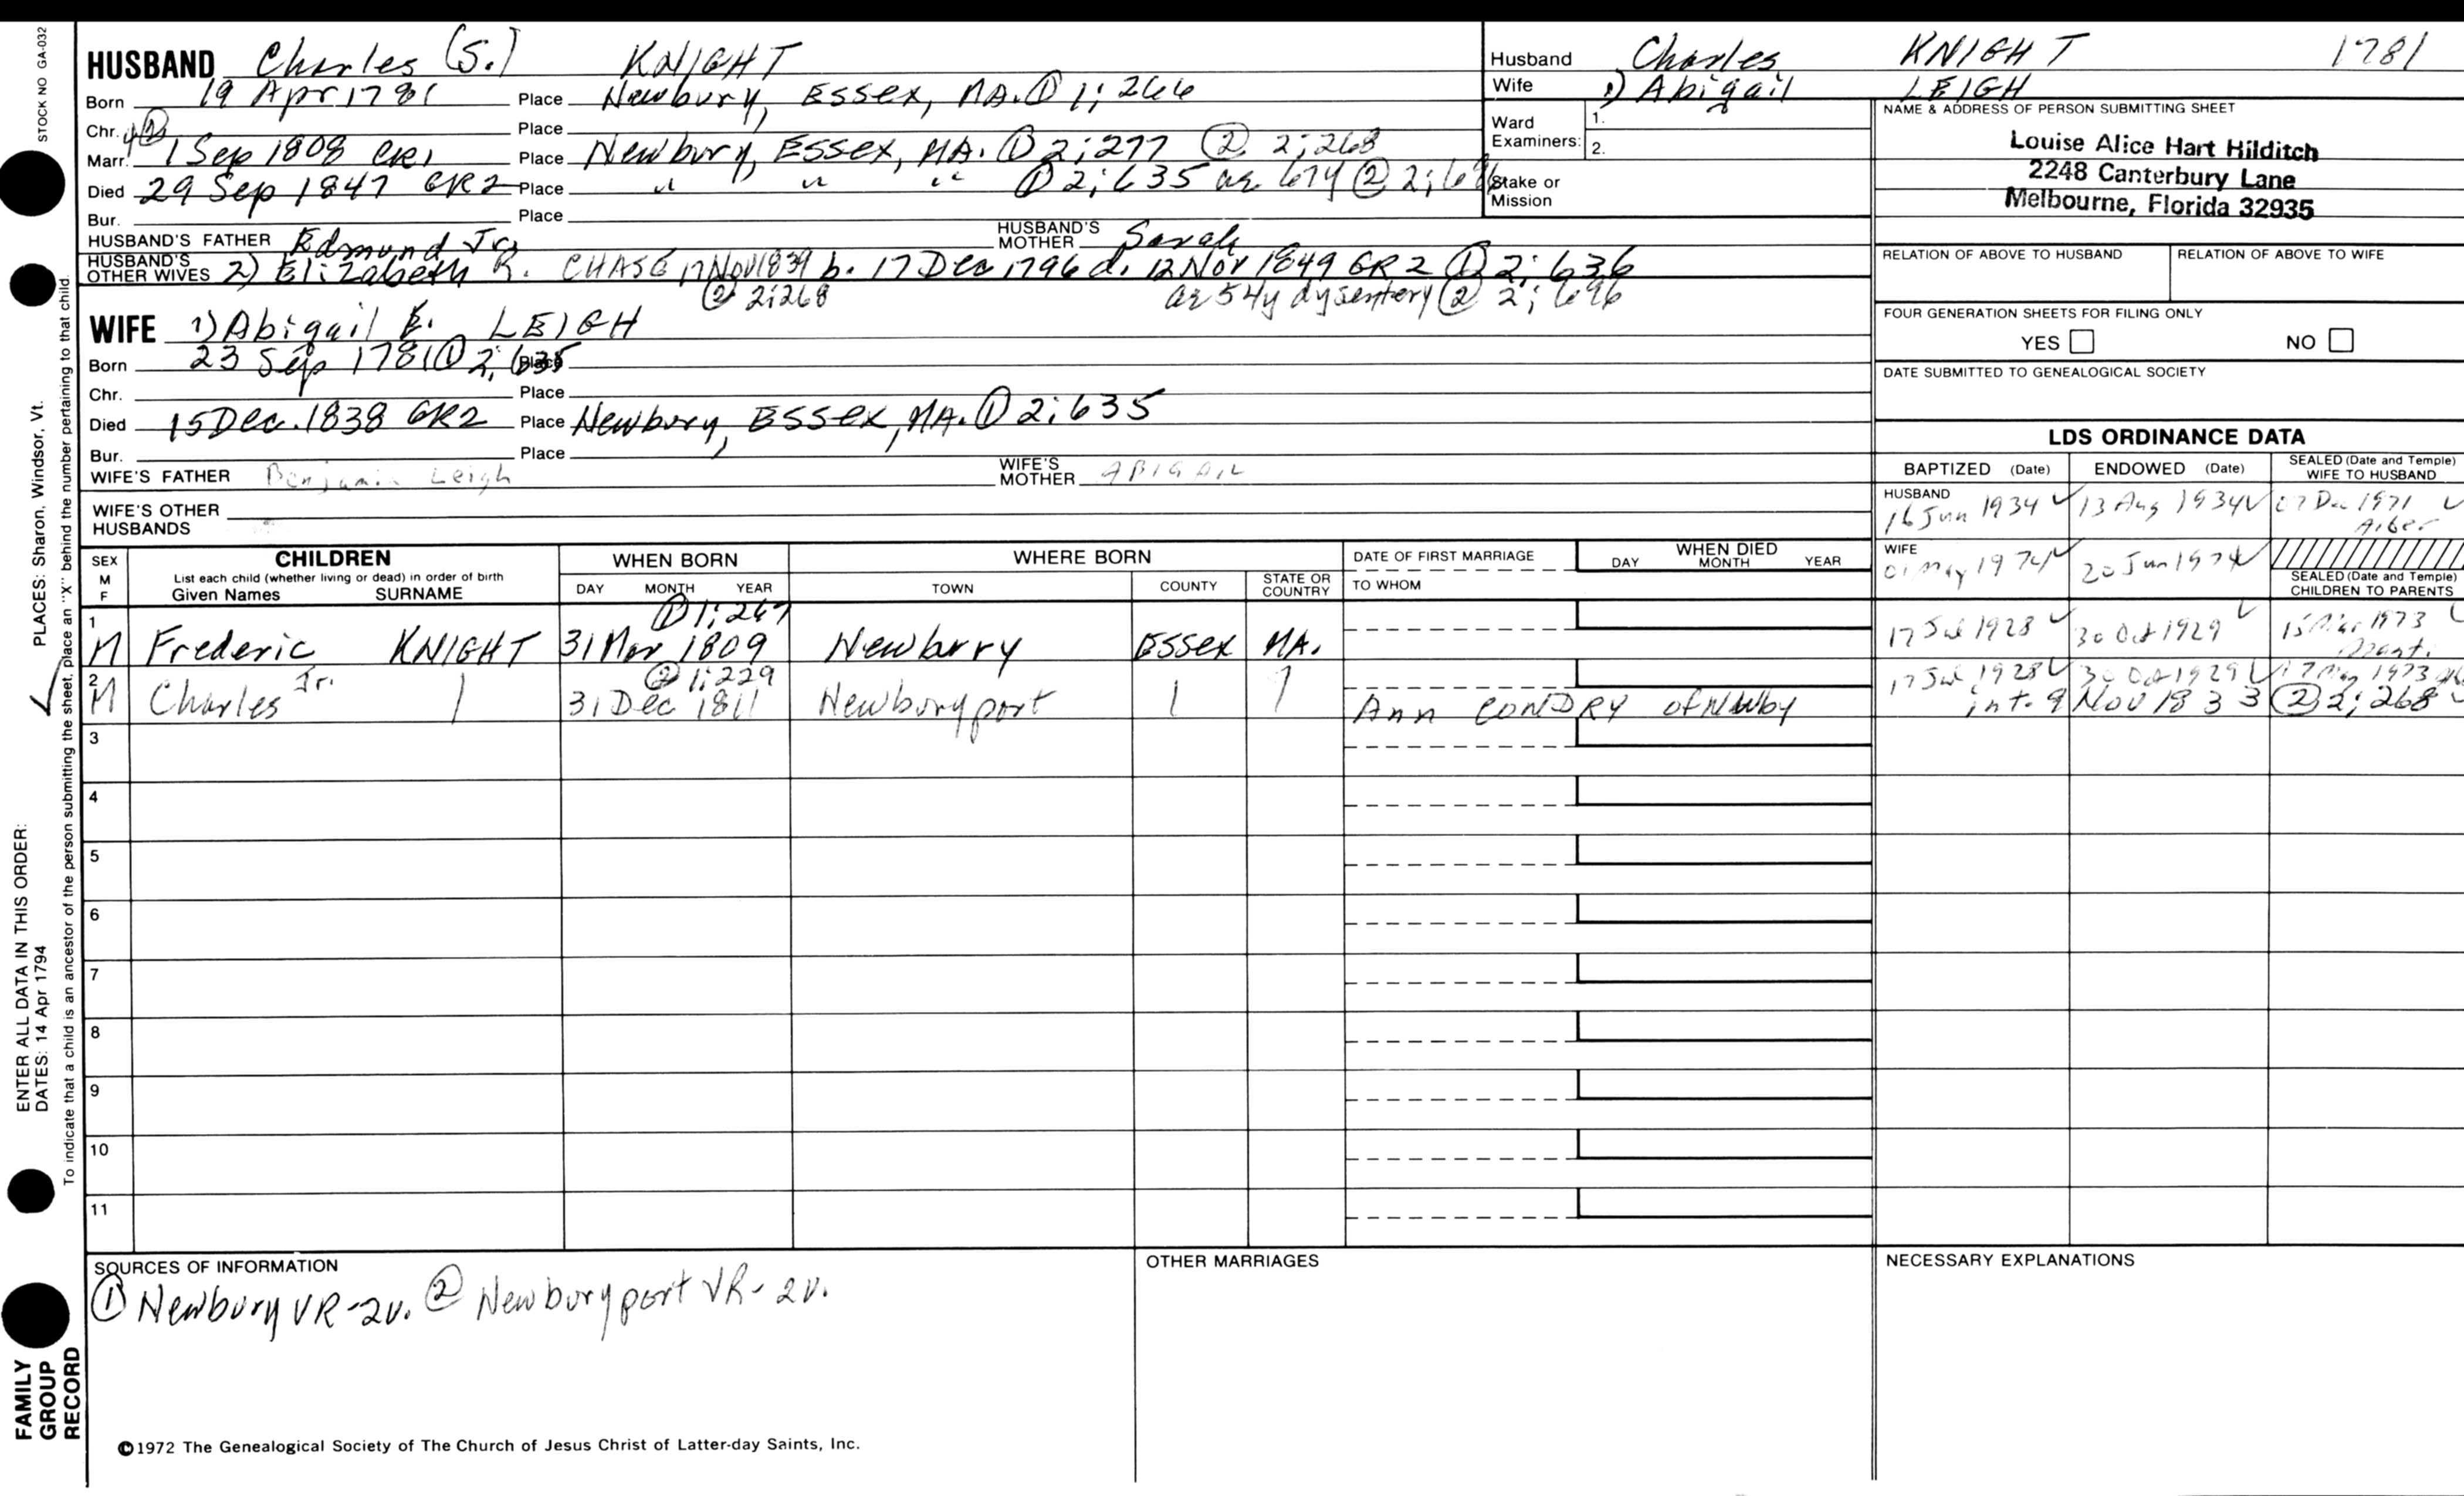 STOCK NO GA-032
HUSBAND Charles (S.) KNIGHT
Born 19 Apr 1781 Place Newbury, Essex, MA. ① 1; 266
Chr. Place
Marr. 1 Sep 1808 CR1 Place Newbury, Essex, MA. ① 2; 277 ② 2; 268
Died 29 Sep 1847 GR2 Place " " " ① 2; 635 ae 67y ② 2; 696
Bur. Place
HUSBAND'S FATHER Edmund Jr. HUSBAND'S MOTHER Sarah
HUSBAND'S OTHER WIVES 2) Elizabeth R. CHASE 17 Nov 1839 b. 17 Dec 1796 d. 12 Nov 1849 GR2 ① 2; 636
② 2; 268 ae 54y dysentery ② 2; 696
WIFE 1) Abigail E. LEIGH
Born 23 Sep 1781 ① 2; 635 Place
Chr. Place
Died 15 Dec. 1838 GR2 Place Newbury, Essex, MA. ① 2; 635
Bur. Place
WIFE'S FATHER Benjamin Leigh WIFE'S MOTHER ABIGAIL
WIFE'S OTHER HUSBANDS
Husband Charles KNIGHT 1781
Wife 1) Abigail LEIGH
Ward Examiners: 1.
2.
Stake or Mission
NAME & ADDRESS OF PERSON SUBMITTING SHEET
Louise Alice Hart Hilditch
2248 Canterbury Lane
Melbourne, Florida 32935
RELATION OF ABOVE TO HUSBAND RELATION OF ABOVE TO WIFE
FOUR GENERATION SHEETS FOR FILING ONLY
YES NO
DATE SUBMITTED TO GENEALOGICAL SOCIETY
LDS ORDINANCE DATA
BAPTIZED (Date) ENDOWED (Date) SEALED (Date and Temple) WIFE TO HUSBAND
HUSBAND 16 Jun 1934 ✓ 13 Aug 1934 ✓ 27 Dec 1971 ✓
WIFE 01 May 1974 ✓ 20 Jun 1974 ✓
SEALED (Date and Temple) CHILDREN TO PARENTS
SEX M F CHILDREN WHEN BORN WHERE BORN DATE OF FIRST MARRIAGE WHEN DIED
List each child (whether living or dead) in order of birth
Given Names SURNAME DAY MONTH YEAR TOWN COUNTY STATE OR COUNTRY TO WHOM DAY MONTH YEAR
① 1; 267
1 M Frederic KNIGHT 31 Mar 1809 Newbury Essex MA. 17 Jul 1928 ✓ 30 Oct 1929 ✓ 15 Mar 1973 ✓
② 1; 229 17 Jul 1928 ✓ 30 Oct 1929 ✓ 17 May 1973
2 M Charles Jr. 31 Dec 1811 Newburyport Ann CONDRY of Nwby int. 9 Nov 1833 ② 2; 268
3
4
5
6
7
8
9
10
11
SOURCES OF INFORMATION OTHER MARRIAGES NECESSARY EXPLANATIONS
① Newbury VR-2v. ② Newburyport VR-2v.
©1972 The Genealogical Society of The Church of Jesus Christ of Latter-day Saints, Inc.
ENTER ALL DATA IN THIS ORDER:
DATES: 14 Apr 1794 PLACES: Sharon, Windsor, Vt.
To indicate that a child is an ancestor of the person submitting the sheet, place an "X" behind the number pertaining to that child.
FAMILY
GROUP
RECORD